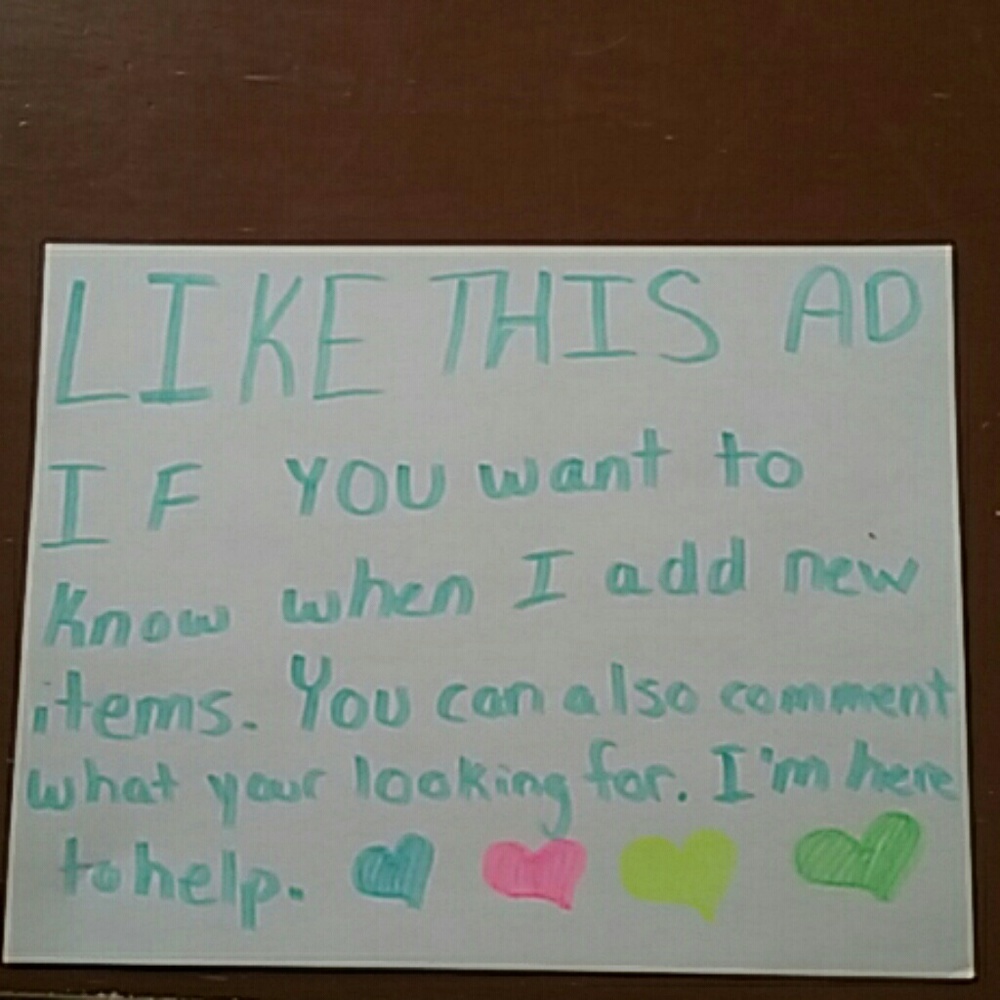 LIKE THIS AD
IF YOU want to
Know when I add new
items. You can also comment
what your looking for. I'm here
to help.